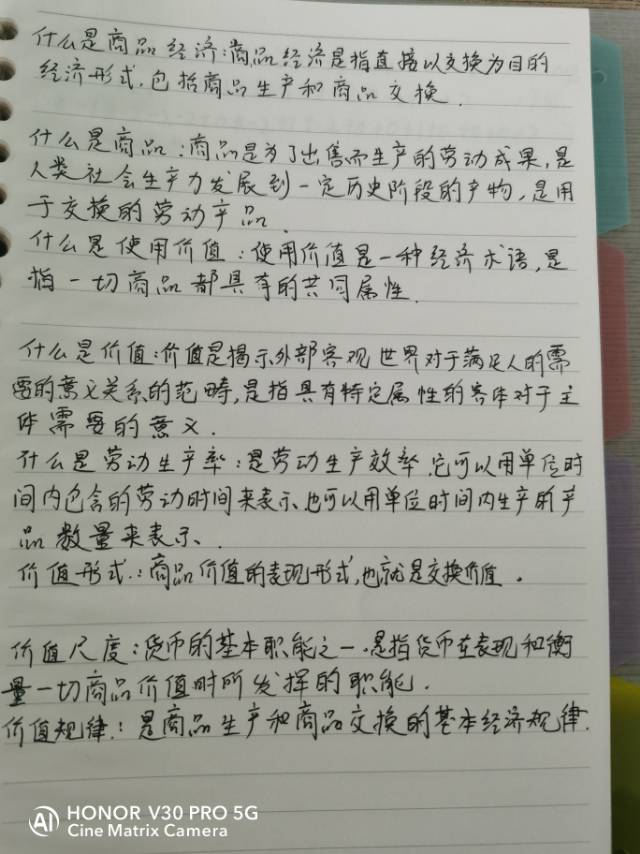 什么是商品经济:商品经济是指直接以交换为目的
经济形式,包括商品生产和商品交换.
什么是商品:商品是为了出售而生产的劳动成果,是
人类社会生产力发展到一定历史阶段的产物,是用
于交换的劳动产品.
什么是使用价值:使用价值是一种经济术语,是
指一切商品都具有的共同属性.
什么是价值:价值是揭示外部客观世界对于满足人的需
要的意义关系的范畴,是指具有特定属性的客体对于主
体需要的意义.
什么是劳动生产率:是劳动生产效率,它可以用单位时
间内包含的劳动时间来表示,也可以用单位时间内生产的产
品数量来表示.
价值形式:商品价值的表现形式,也就是交换价值.
价值尺度:货币的基本职能之一.是指货币在表现和衡
量一切商品价值时所发挥的职能.
价值规律:是商品生产和商品交换的基本经济规律.
AI HONOR V30 PRO 5G
Cine Matrix Camera